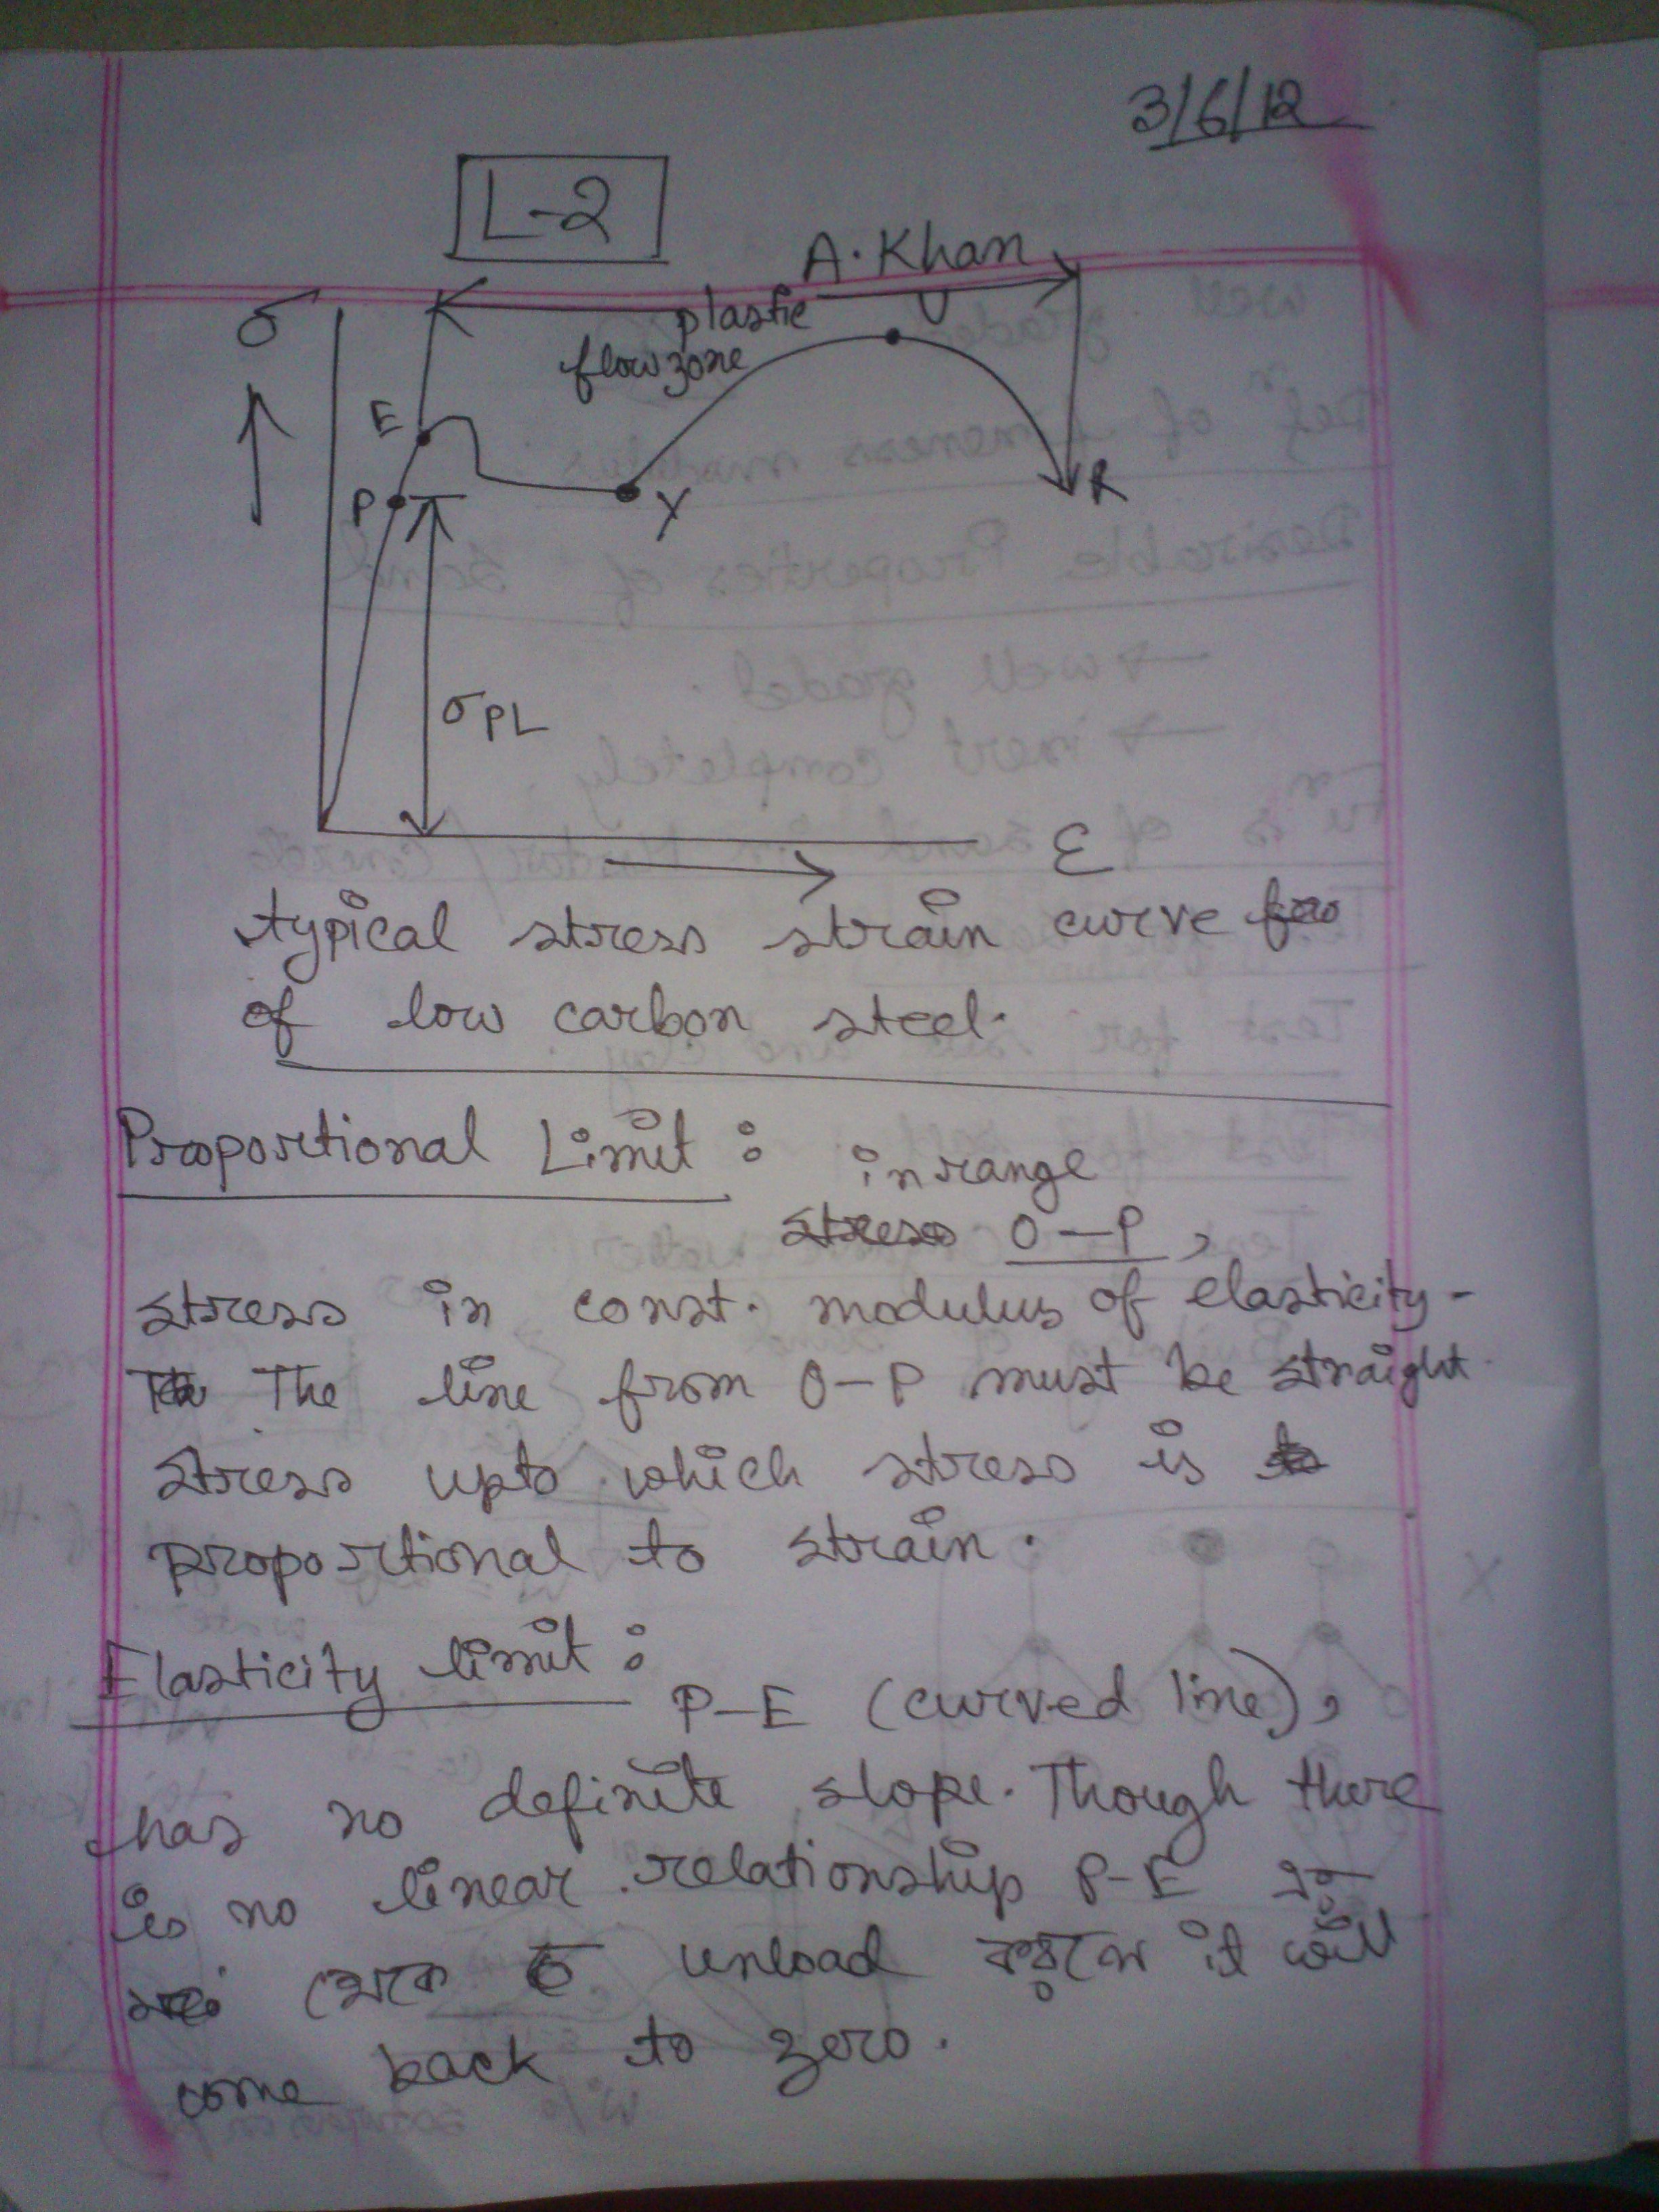 3/6/12
L-2
A. Khan
σ
plastic
flow zone
U
E
P
Y
R
σPL
ε
typical stress strain curve
of low carbon steel.
Proportional Limit :
in range
stress O-P,
stress in const. modulus of elasticity-
The line from O-P must be straight.
stress upto which stress is
proportional to strain.
Elasticity limit :
P-E (curved line),
has no definite slope. Though there
is no linear relationship P-E
থেকে unload করলে it will
come back to zero.